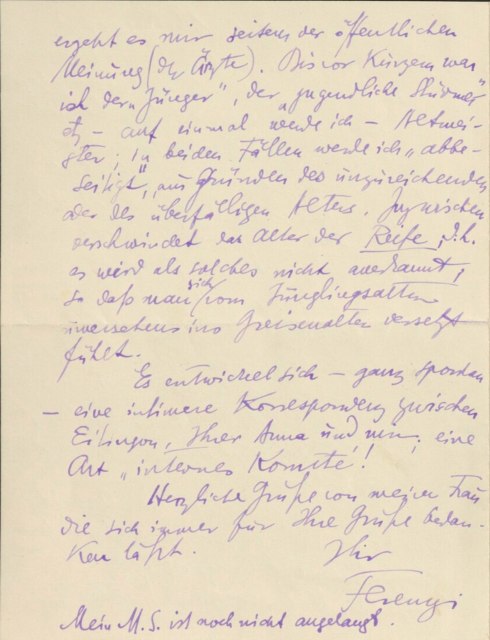 ergeht es mir seitens der öffentlichen
Meinung (der Ärzte). Bis vor Kurzem war
ich der „Jünger", der „jugendliche Stürmer"
etz – auf einmal werde ich – Altmei-
ster; in beiden Fällen werde ich „abbe-
seitigt", aus Gründen des unzureichenden
oder des überfälligen Alters. Inzwischen
verschwindet das Alter der Reife, d.h.
es wird als solches nicht anerkannt,
so daß man sich vom Jünglingsalter
unversehens ins Greisenalter versetzt
fühlt.
Es entwickelt sich – ganz spontan
– eine intimere Korrespondenz zwischen
Eitingon, Ihrer Anna und mir, eine
Art „internes Komité"!
Herzliche Grüße von meiner Frau
die sich immer für Ihre Grüße bedan-
ken läßt.
Ihr
Ferenczi
Mein M.S. ist noch nicht angelangt.